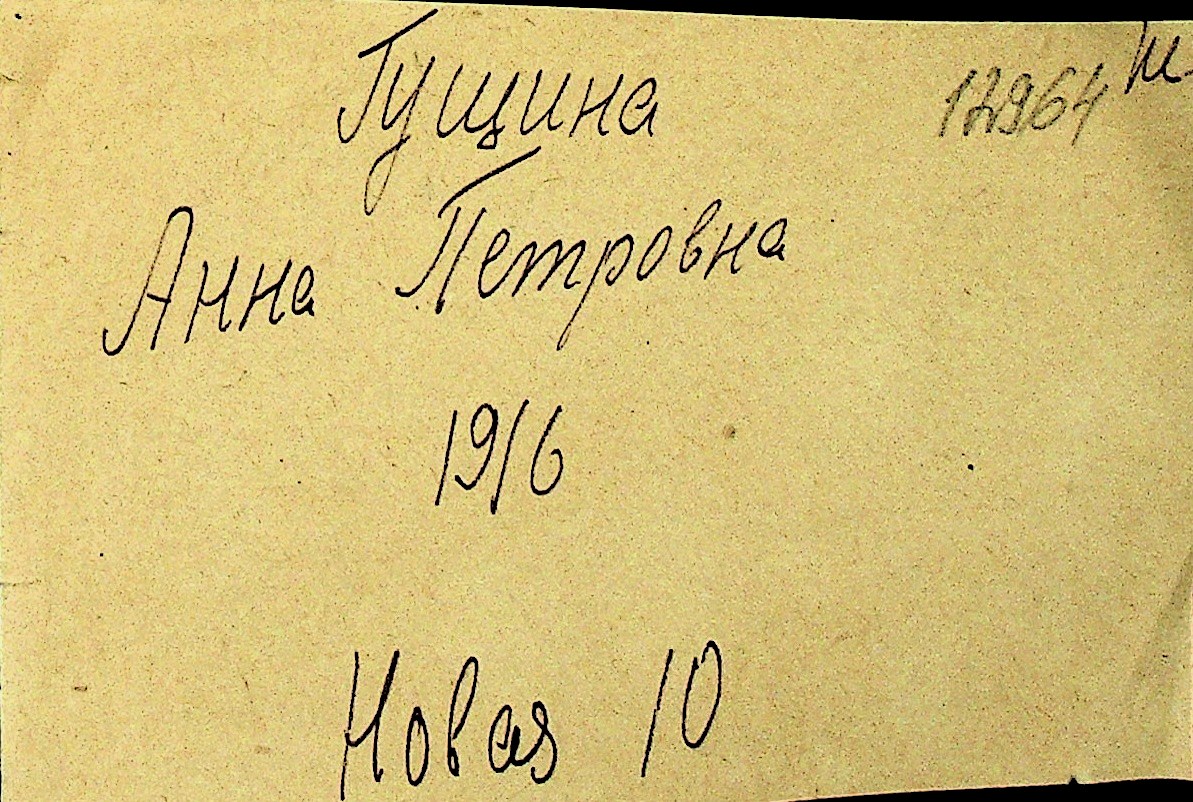 Гущина
12964
Анна Петровна
1916
Новая 10